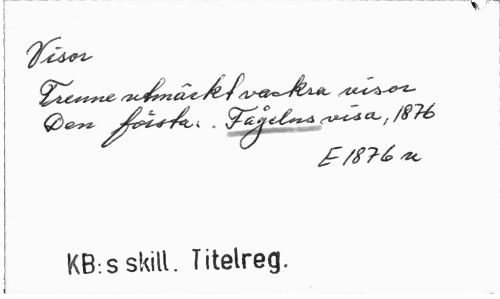 Visor
Trenne utmärkt vackra visor
Den första. . Fågelns visa, 1876
E 1876 u
KB:s skill. Titelreg.